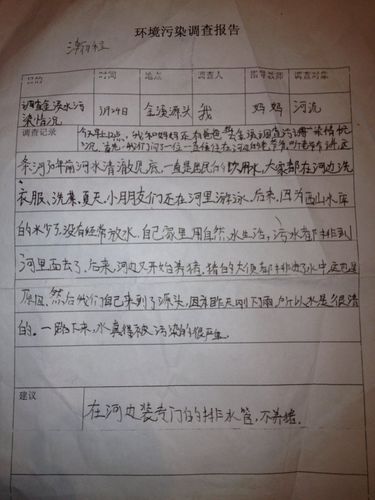 环境污染调查报告
目的 时间 地点 调查人 指导教师 调查对象
调查金溪水污染情况 3月24日 金溪源头 我 妈妈 河流
调查记录 今天早上8点,我和妈妈还有爸爸去金溪调查污染情
况,首先,我们问了一位一直住在河边的
条河30年前河水清澈见底,一直是居民们的饮用水,大家都在河边洗
衣服、洗菜,夏天,小朋友们还在河里游泳,后来,因为西山水库
的水少了,没有经常放水,自己家里用自然水生活,污水都排到
河里面去了,后来,河边又开始养猪,猪的大便都排放了水中这也是
原因,然后我们自己来到了源头,因为昨天刚下雨,所以水是很清
的。一路下来,水真得被污染的很严重。
建议
在河边装专门的排水管,不养猪.